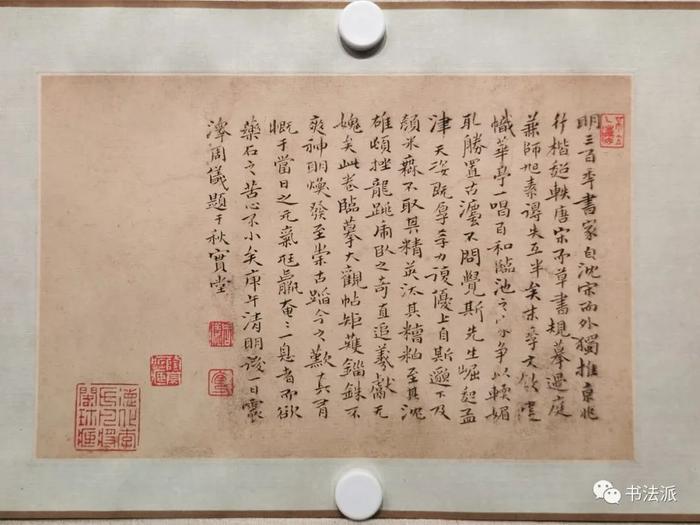 明三百年書家自沈宋而外獨推京兆
行楷超軼唐宋而草書規摹過庭
兼師旭素得失互半矣末季文敏建
幟華亭一唱百和臨池之家爭以輭媚
取勝置古灋不問覺斯先生崛起孟
津天姿既厚學力復優上自斯邈下及
顏米靡不取其精英汰其糟粕至其沈
雄頓挫龍跳虎臥之奇直追羲獻无
媿矣此卷臨摹大觀帖矩矱錙銖不
爽神明煥發至崇古蹈今之歎其有
慨于當日之元氣尫羸奄〻一息者而欲
藥石之苦心不小矣庚午清明後一日靈
周儀題于秋實堂
书法派